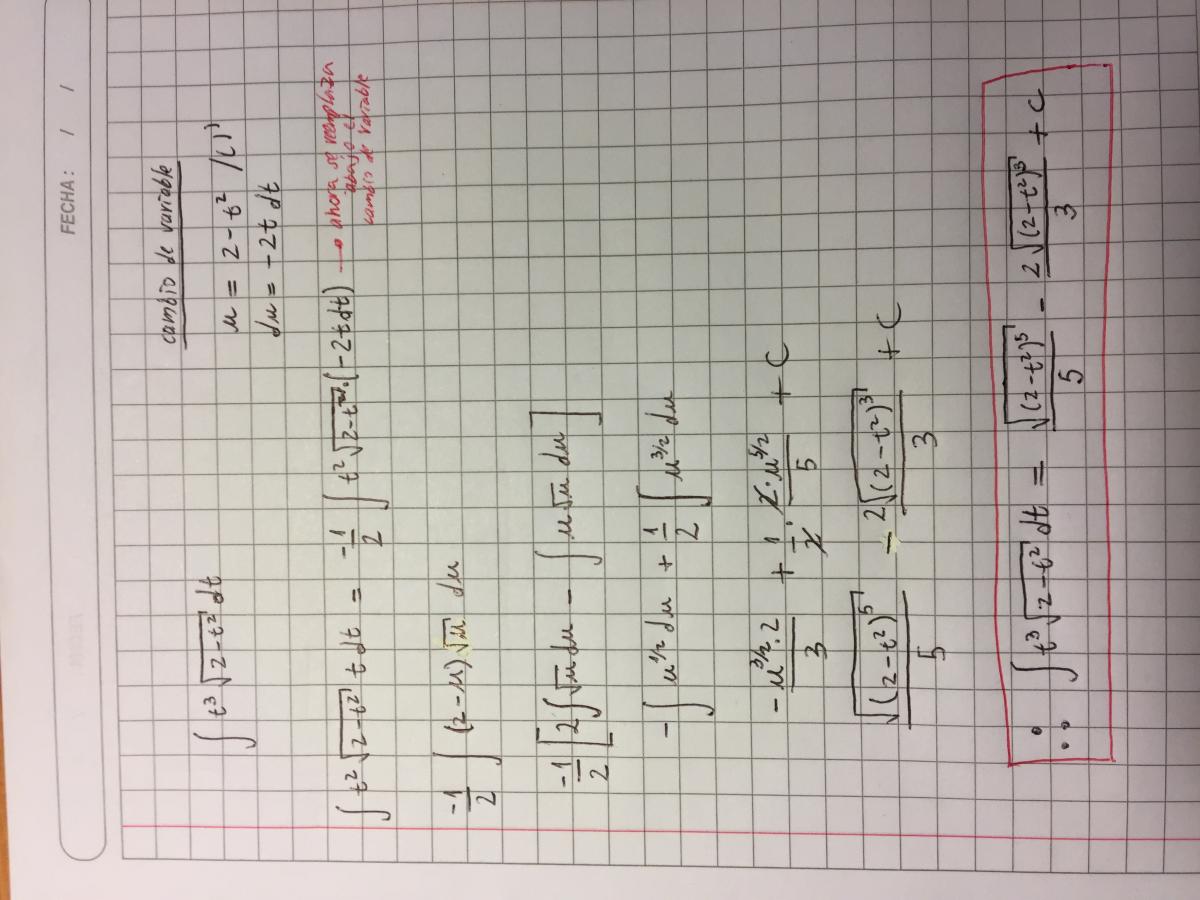 FECHA: / /
cambio de variable
∫ t³ √(2-t²) dt
u = 2 - t² /( )'
du = -2t dt
∫ t² √(2-t²) t dt = -1/2 ∫ t² √(2-t²) · (-2t dt) → ahora se reemplaza
abajo el
cambio de variable
-1/2 ∫ (2-u) √u du
-1/2 [ 2 ∫ √u du - ∫ u √u du ]
- ∫ u^(1/2) du + 1/2 ∫ u^(3/2) du
- u^(3/2) · 2 / 3 + 1/2 · 2 · u^(5/2) / 5 + C
√((2-t²)⁵) / 5 - 2 √((2-t²)³) / 3 + C
∴ ∫ t³ √(2-t²) dt = √((2-t²)⁵) / 5 - 2 √((2-t²)³) / 3 + C